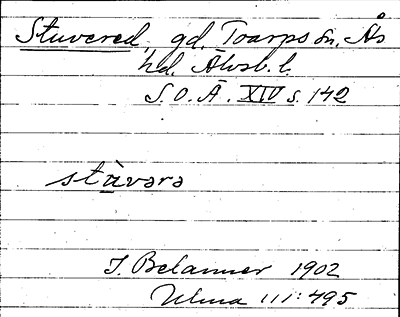 Stuvered, gd. Toarps sn. Ås
hd. Älvsb. l.
S.O.Ä. XIV s. 142
stùvərə
J. Belanner 1902
Ulma 111:495